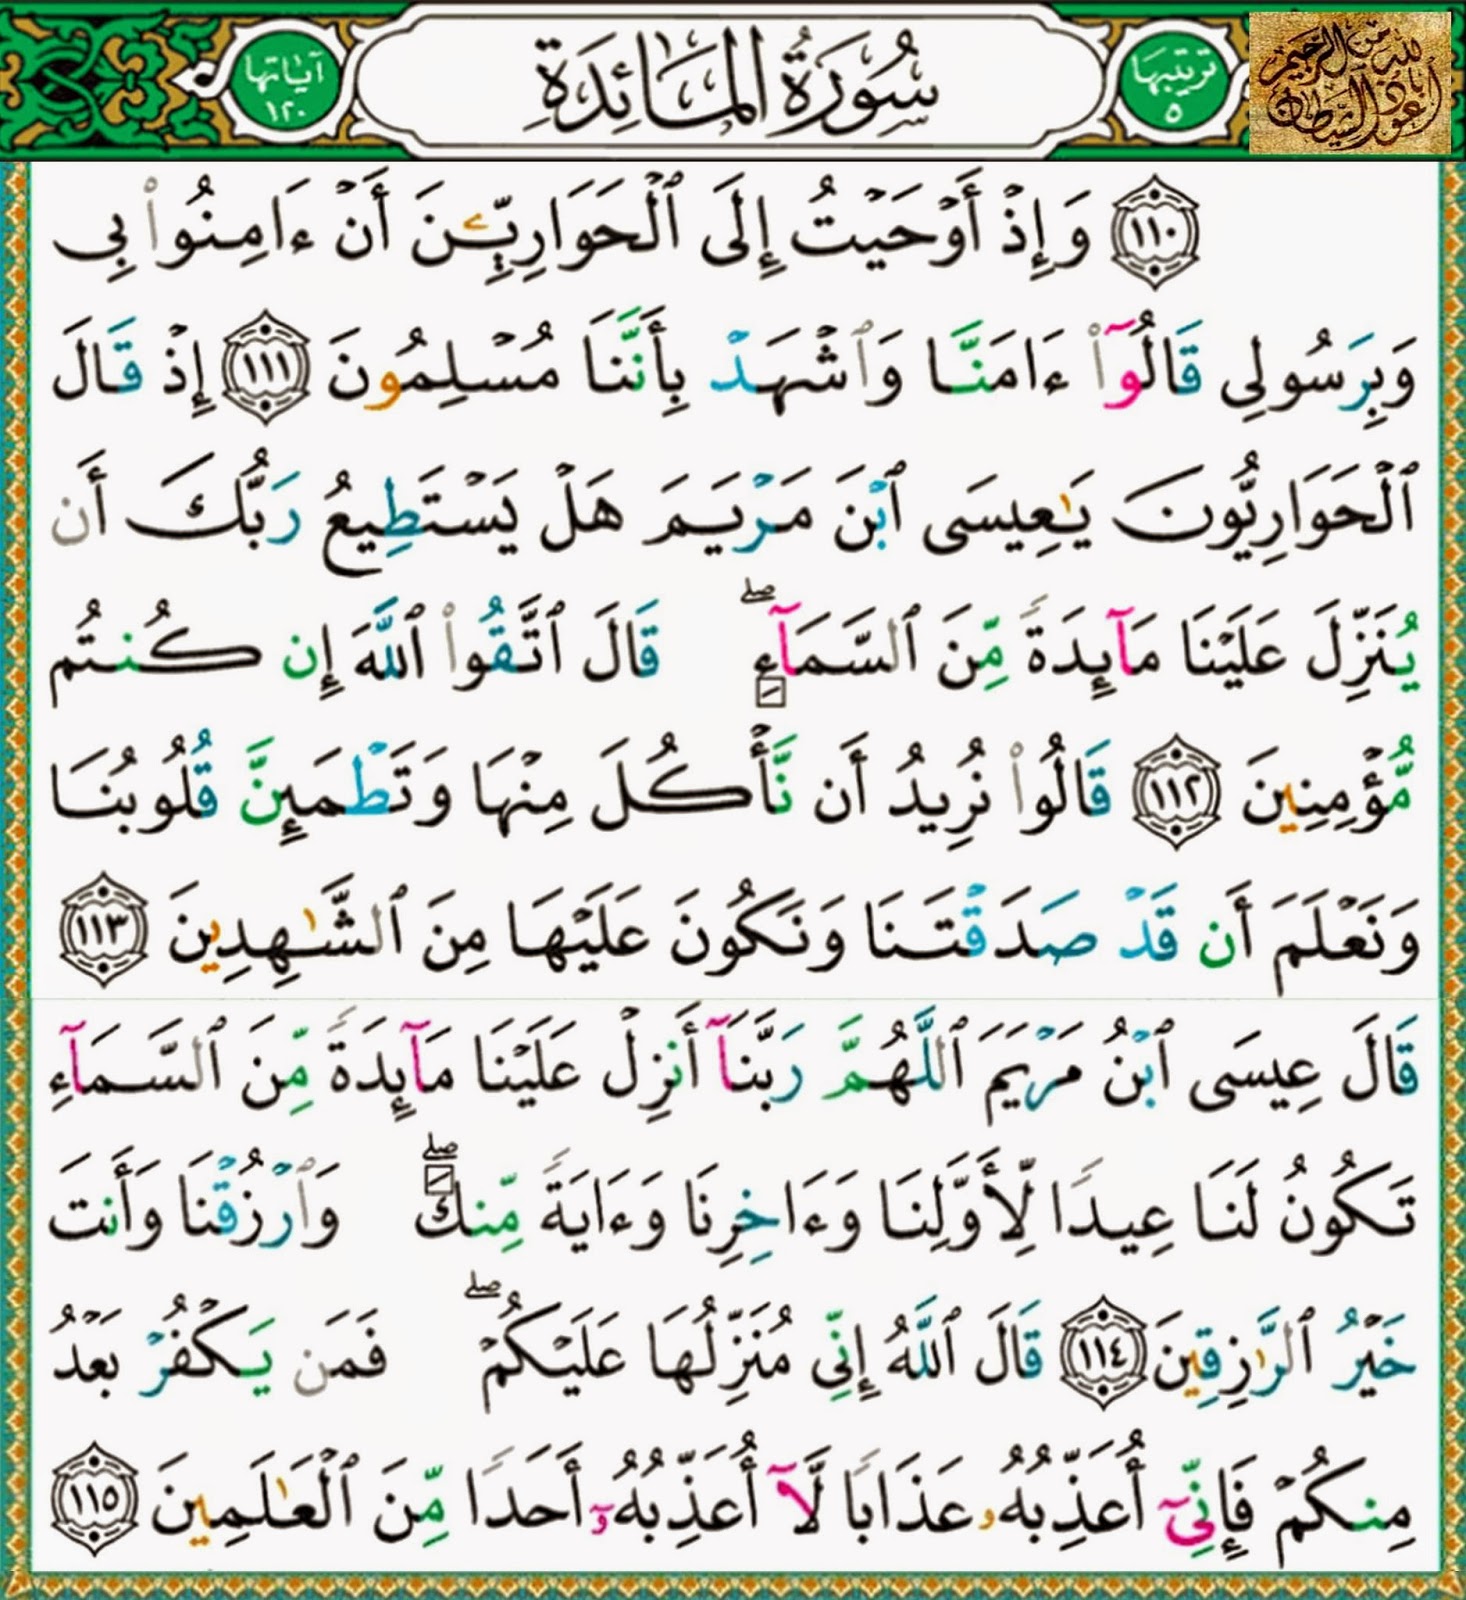 ترتيبها ٥
سُورَةُ المَائِدَةِ
آياتها ١٢٠
أعوذ بالله من الشيطان الرجيم
١١٠ وَإِذْ أَوْحَيْتُ إِلَى ٱلْحَوَارِيِّـۧنَ أَنْ ءَامِنُوا۟ بِى
وَبِرَسُولِى قَالُوٓا۟ ءَامَنَّا وَٱشْهَدْ بِأَنَّنَا مُسْلِمُونَ ١١١ إِذْ قَالَ
ٱلْحَوَارِيُّونَ يَـٰعِيسَى ٱبْنَ مَرْيَمَ هَلْ يَسْتَطِيعُ رَبُّكَ أَن
يُنَزِّلَ عَلَيْنَا مَآئِدَةً مِّنَ ٱلسَّمَآءِ ۖ قَالَ ٱتَّقُوا۟ ٱللَّهَ إِن كُنتُم
مُّؤْمِنِينَ ١١٢ قَالُوا۟ نُرِيدُ أَن نَّأْكُلَ مِنْهَا وَتَطْمَئِنَّ قُلُوبُنَا
وَنَعْلَمَ أَن قَدْ صَدَقْتَنَا وَنَكُونَ عَلَيْهَا مِنَ ٱلشَّـٰهِدِينَ ١١٣
قَالَ عِيسَى ٱبْنُ مَرْيَمَ ٱللَّهُمَّ رَبَّنَآ أَنزِلْ عَلَيْنَا مَآئِدَةً مِّنَ ٱلسَّمَآءِ
تَكُونُ لَنَا عِيدًا لِّأَوَّلِنَا وَءَاخِرِنَا وَءَايَةً مِّنكَ ۖ وَٱرْزُقْنَا وَأَنتَ
خَيْرُ ٱلرَّٰزِقِينَ ١١٤ قَالَ ٱللَّهُ إِنِّى مُنَزِّلُهَا عَلَيْكُمْ ۖ فَمَن يَكْفُرْ بَعْدُ
مِنكُمْ فَإِنِّىٓ أُعَذِّبُهُۥ عَذَابًا لَّآ أُعَذِّبُهُۥٓ أَحَدًا مِّنَ ٱلْعَـٰلَمِينَ ١١٥